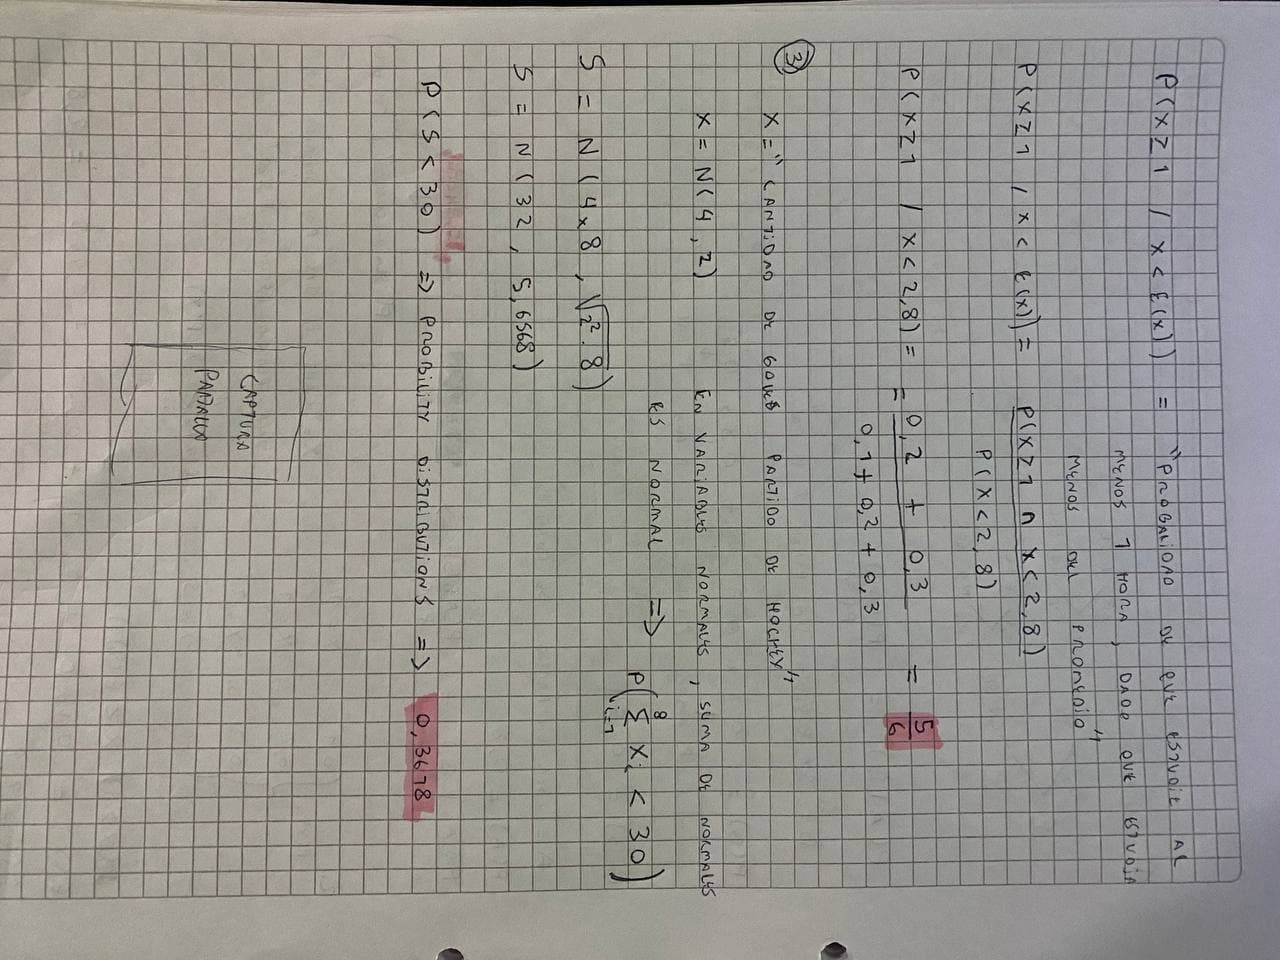 P(X≥1 / X < E(X)) = "PROBABILIDAD DE QUE ESTUDIE AL
MENOS 1 HORA, DADO QUE ESTUDIA
MENOS DEL PROMEDIO"
P(X≥1 / X < E(X)) = P(X≥1 ∩ X<2,8)
P(X<2,8)
P(X≥1 / X<2,8) = = 0,2 + 0,3 = 5/6
0,1 + 0,2 + 0,3
③ X = "CANTIDAD DE GOLES PARTIDO DE HOCKEY"
X = N(4,2) EN VARIABLES NORMALES, SUMA DE NORMALES
ES NORMAL => P(8∑i=1 Xi < 30)
S = N(4x8, √2².8)
S = N(32, 5,6568)
P(S<30) => PROBILITY DISTRIBUTIONS => 0,3678
CAPTURA
PANTALLA